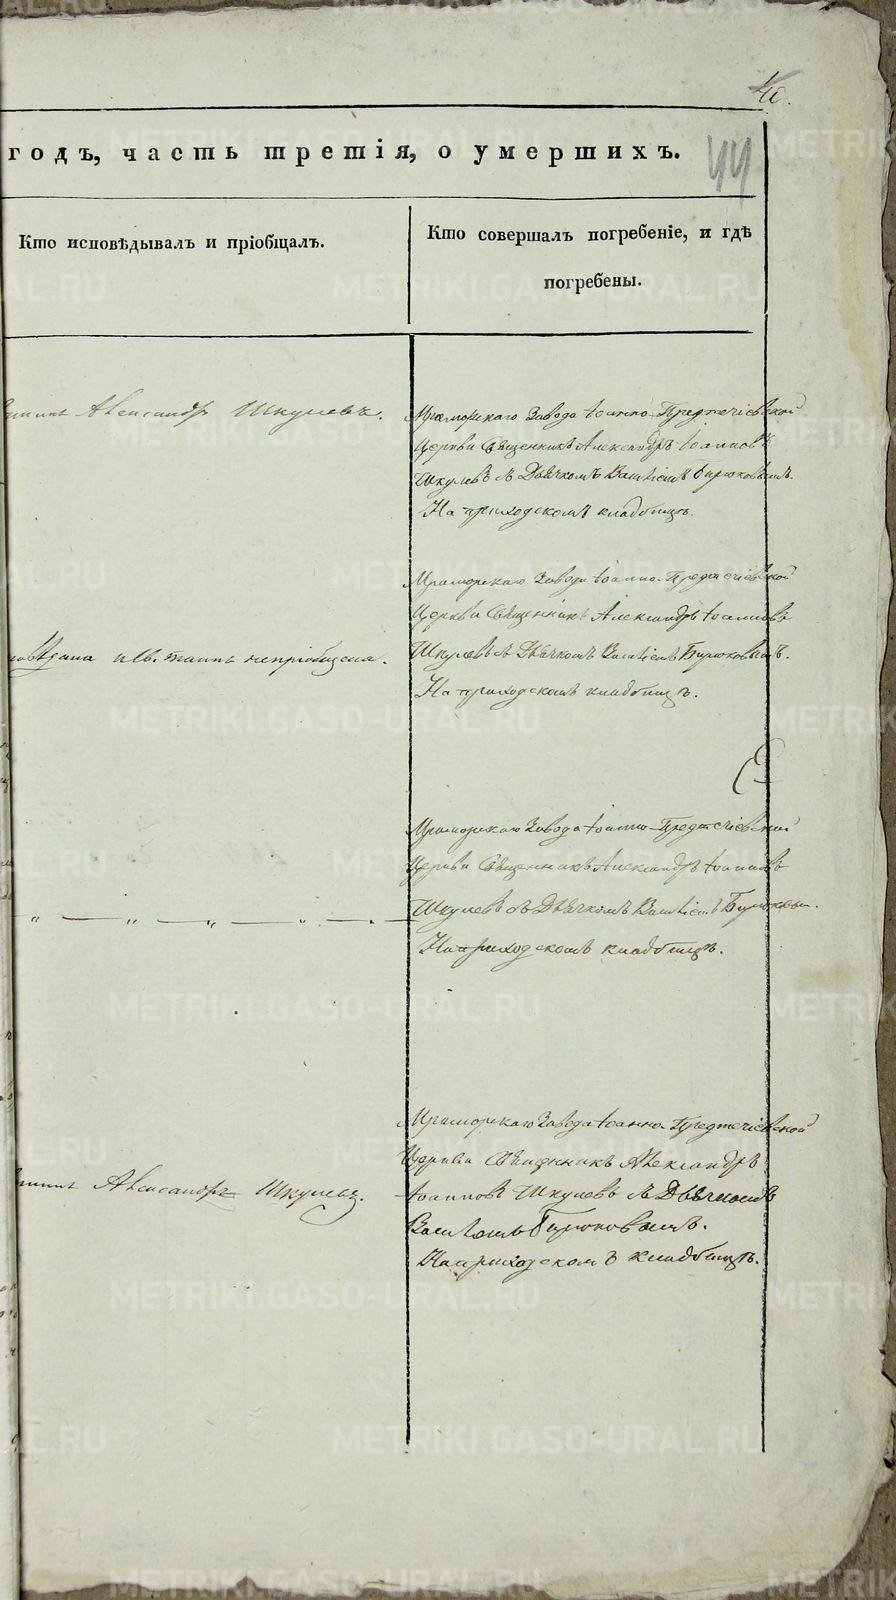 годъ, часть третія, о умершихъ.
44
Кто исповѣдывалъ и пріобщалъ.
Кто совершалъ погребеніе, и гдѣ
погребены.
Александръ Шкулевъ.
Мраморскаго Завода Іоанно-Предтечіевской
Церкви Священникъ Александръ Іоанновъ
Шкулевъ съ Дьячкомъ Василіемъ Бирюковымъ.
На приходскомъ кладбищѣ.
Мраморскаго Завода Іоанно-Предтечіевской
Церкви Священникъ Александръ Іоанновъ
и Св. Таинъ непріобщена.
Шкулевъ съ Дьячкомъ Василіемъ Бирюковымъ.
На приходскомъ кладбищѣ.
Мраморскаго Завода Іоанно-Предтечіевской
Церкви Священникъ Александръ Іоанновъ
Шкулевъ съ Дьячкомъ Василіемъ Бирюковым.
На приходскомъ кладбищѣ.
Мраморскаго Завода Іоанно-Предтечіевской
Церкви Священникъ Александръ
Александръ Шкулевъ.
Іоанновъ Шкулевъ съ Дьячкомъ
Василіемъ Бирюковымъ.
На приходскомъ кладбищѣ.
METRIKI.GASO-URAL.RU